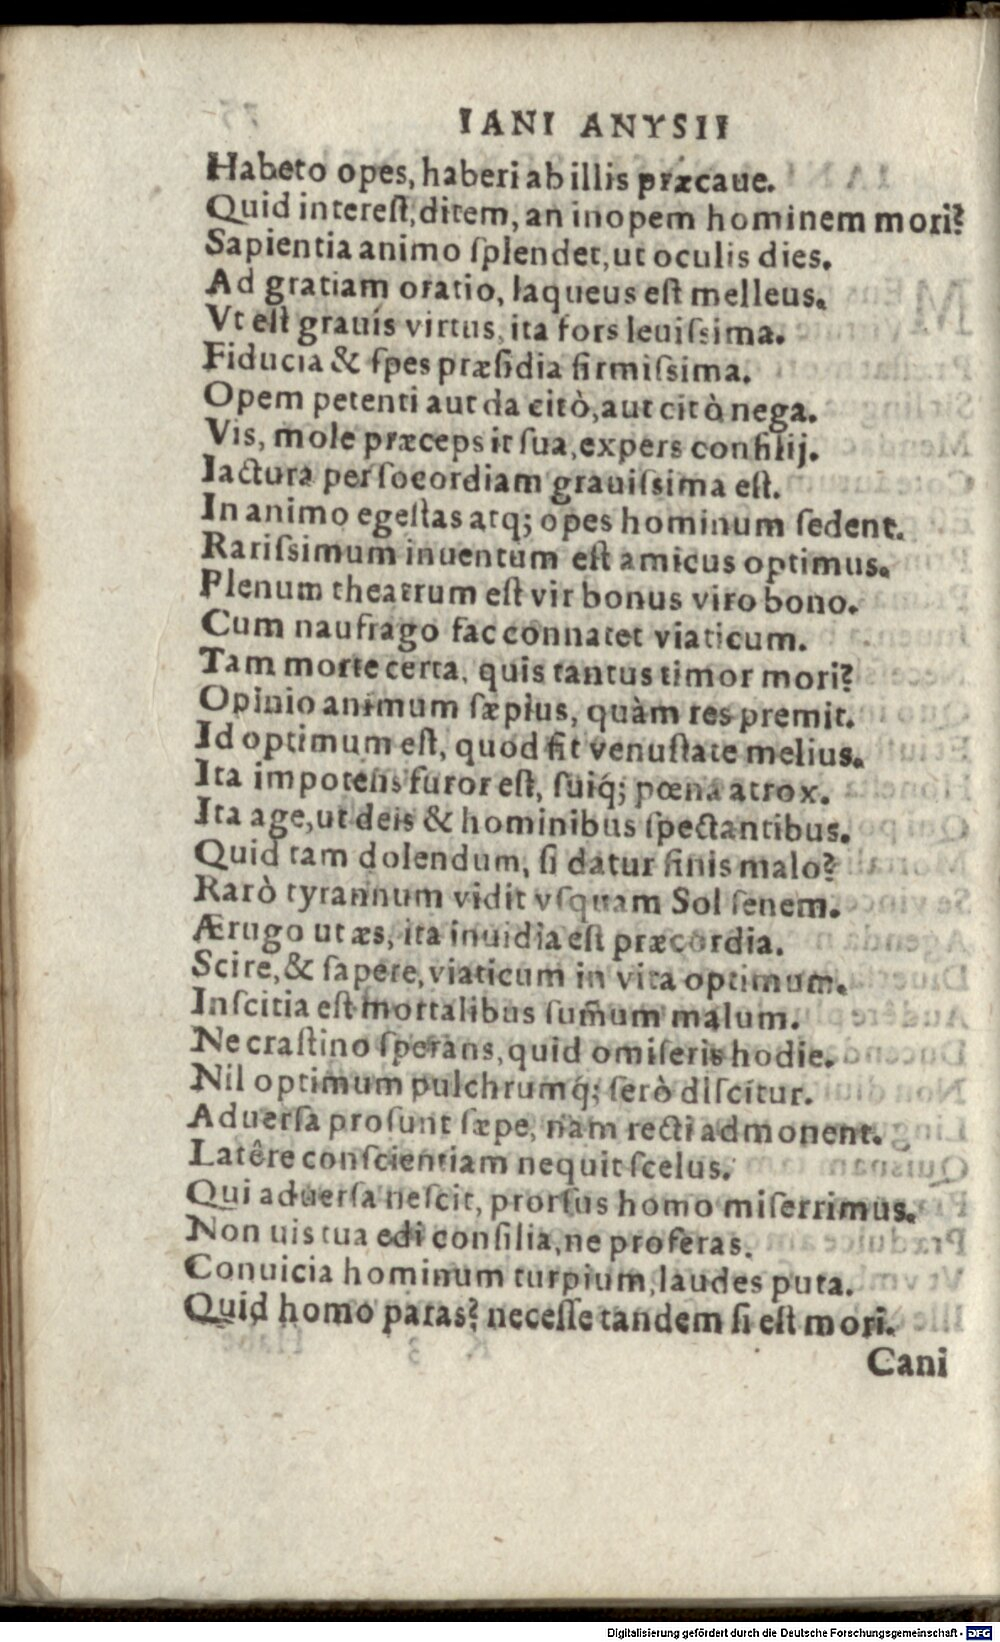 IANI ANYSII
Habeto opes, haberi ab illis præcaue.
Quid intereſt, ditem, an inopem hominem mori?
Sapientia animo ſplendet, ut oculis dies.
Ad gratiam oratio, laqueus eſt melleus.
Vt eſt grauis virtus, ita fors leuiſsima.
Fiducia & ſpes præſidia firmiſsima.
Opem petenti aut da citò, aut citò nega.
Vis, mole præceps it ſua, expers conſilij.
Iactura per ſocordiam grauiſsima eſt.
In animo egeſtas atq; opes hominum ſedent.
Rariſsimum inuentum eſt amicus optimus.
Plenum theatrum eſt vir bonus viro bono.
Cum naufrago fac connatet viaticum.
Tam morte certa, quis tantus timor mori?
Opinio animum ſæpius, quàm res premit.
Id optimum eſt, quod fit venuſtate melius.
Ita impotens furor eſt, ſuiq́; pœna atrox.
Ita age, ut deis & hominibus ſpectantibus.
Quid tam dolendum, ſi datur finis malo?
Rarò tyrannum vidit vſquam Sol ſenem.
Ærugo ut æs, ita inuidia eſt præcordia.
Scire, & ſapere, viaticum in vita optimum.
Inſcitia eſt mortalibus ſum̃um malum.
Ne craſtino ſperans, quid omiſeris hodie.
Nil optimum pulchrumq́; ſerò diſcitur.
Aduerſa proſunt ſæpe, nam recti admonent.
Latêre conſcientiam nequit ſcelus.
Qui aduerſa neſcit, prorſus homo miſerrimus.
Non uis tua edi conſilia, ne proferas.
Conuicia hominum turpium, laudes puta.
Quid homo paras? neceſſe tandem ſi eſt mori.
Cani
Digitalisierung gefördert durch die Deutsche Forschungsgemeinschaft - DFG